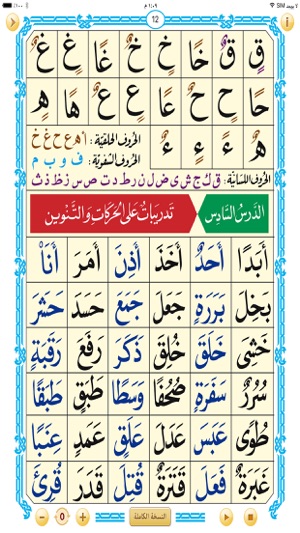 لا يوجد SIM ١:٠٩ م ١٠٠٪
12
قٍ قٌ خًا خٍ خٌ غًا غٍ غٌ
حًا حٍ حٌ عًا عٍ عٌ هًا هٍ
هٌ ءً ءٍ ءٌ
الحُرُوف الحَلْقِيَّة : ا ه ع ح غ خ
الحُرُوف الشَّفَوِيَّة : ف و ب م
الحُرُوف اللِّسَانِيَّة : ق ك ج ش ي ض ل ن ر ط د ت ص س ز ظ ذ ث
الدَّرْسُ السَّادِس تَدْرِيبَاتٌ عَلَى الحَرَكَاتِ وَالتَّنْوِين
أَبَدًا أَحَدٌ أَخَذَ أَذِنَ أَمَرَ أَنَاْ
بَخِلَ بَرَرَةٍ جَعَلَ جَمَعَ حَسَدَ حَشَرَ
خَشِيَ خَلَقَ خُلِقَ ذَكَرَ رَفَعَ رَقَبَةٍ
سُرُرٌ سَفَرَةٍ صُحُفًا وَسَطًا طَبَقٍ طَبَقًا
طُوًى عَبَسَ عَدَلَ عَلَقٍ عَمَدٍ عِنَبًا
غَبَرَةٌ فَعَلَ قَتَرَةٌ قُتِلَ قَدَرَ قُرِئَ
النسخة الكاملة
− 0 +